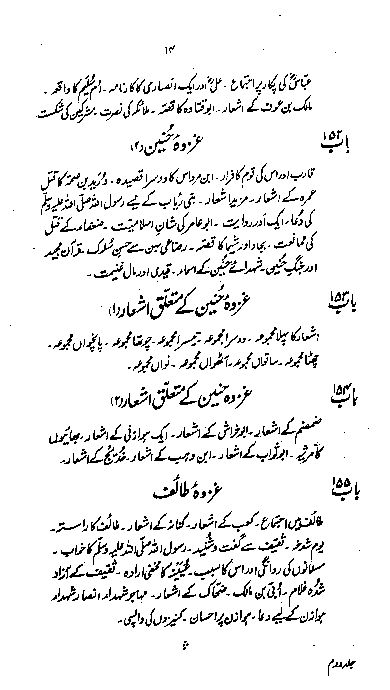 ۱۴
عباسؓ کی پکار پر اجتماع ۔ علیؓ اور ایک انصاری کا کارنامہ ۔ اُم سُلَیم کا واقعہ ۔
مالک بن عوف کے اشعار ۔ ابو قتادہ کا قصّہ ۔ ملائکہ کی نصرت ۔ مشرکین کی شکست
باب ۱۵۲ غزوۂ حُنین (۲)
قارب اور اس کی قوم کا فرار ۔ ابن مرداس کا دوسرا قصیدہ ۔ دُرَید بن صمّہ کا قتل
عمرہ کے اشعار ۔ مزید اشعار ۔ بنی رباب کے لیے رسول اللہ صلی اللہ علیہ وسلم
کی دُعا ۔ ایک اور روایت ۔ ابو عامر کی شانِ اسلامیت ۔ ضعفاء کے قتل
کی ممانعت ۔ بجاد اور شیما کا قصّہ ۔ رضاعی بہن سے حسنِ سُلوک ۔ قرآن مجید
اور جنگِ حُنین ۔ شہدائے حُنین کے اسماء ۔ قیدی اور مال غنیمت ۔
باب ۱۵۳ غزوۂ حُنین کے متعلق اشعار (۱)
اشعار کا پہلا مجموعہ ۔ دوسرا مجموعہ ۔ تیسرا مجموعہ ۔ چوتھا مجموعہ ۔ پانچواں مجموعہ ۔
چھٹا مجموعہ ۔ ساتواں مجموعہ ۔ آٹھواں مجموعہ ۔ نواں مجموعہ ۔
باب ۱۵۴ غزوۂ حنین کے متعلق اشعار (۲)
ضمضم کے اشعار ۔ ابو خراش کے اشعار ۔ ایک ہوازنی کے اشعار ۔ بھائیوں
کا مرثیہ ۔ ابو ثواب کے اشعار ۔ ابن وہب کے اشعار ۔ خدیج کے اشعار ۔
باب ۱۵۵ غزوۂ طائف
طائف میں اجتماع ۔ کعب کے اشعار ۔ کنانہ کے اشعار ۔ طائف کا راستہ ۔
یوم شدخہ ۔ ثقیف سے گفت و شنید ۔ رسول اللہ صلی اللہ علیہ وسلم کا خواب ۔
مسلمانوں کی روانگی اور اس کا سبب ۔ عُیَینہ کا مخفی ارادہ ۔ ثقیف کے آزاد
شدہ غلام ۔ اُبَیّ بن مالک ۔ ضحاک کے اشعار ۔ مہاجر شہداء انصار شہداء
ہوازن کے لیے دعا ۔ ہوازن پر احسان ۔ کنیزوں کی واپسی ۔
جلد دوم